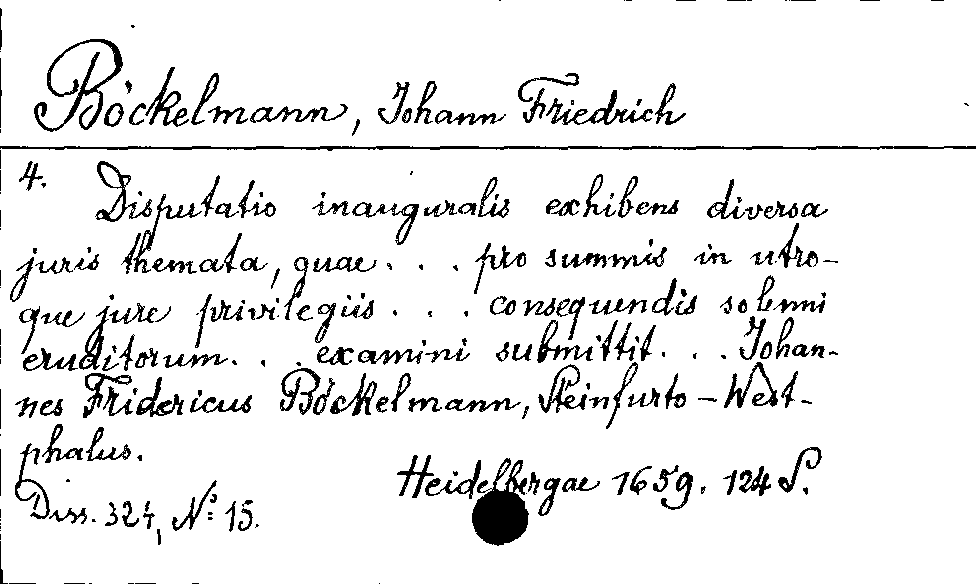 Böckelmann, Johann Friedrich
4.
Disputatio inauguralis exhibens diversa
juris themata, quae . . . pro summis in utro-
que jure privilegiis . . . consequendis solenni
eruditorum . . . examini submittit . . . Johan-
nes Fridericus Böckelmann, Steinfurto-West-
phalus.
Heidelbergae 1659. 124 S.
Diss. 324, No: 15.